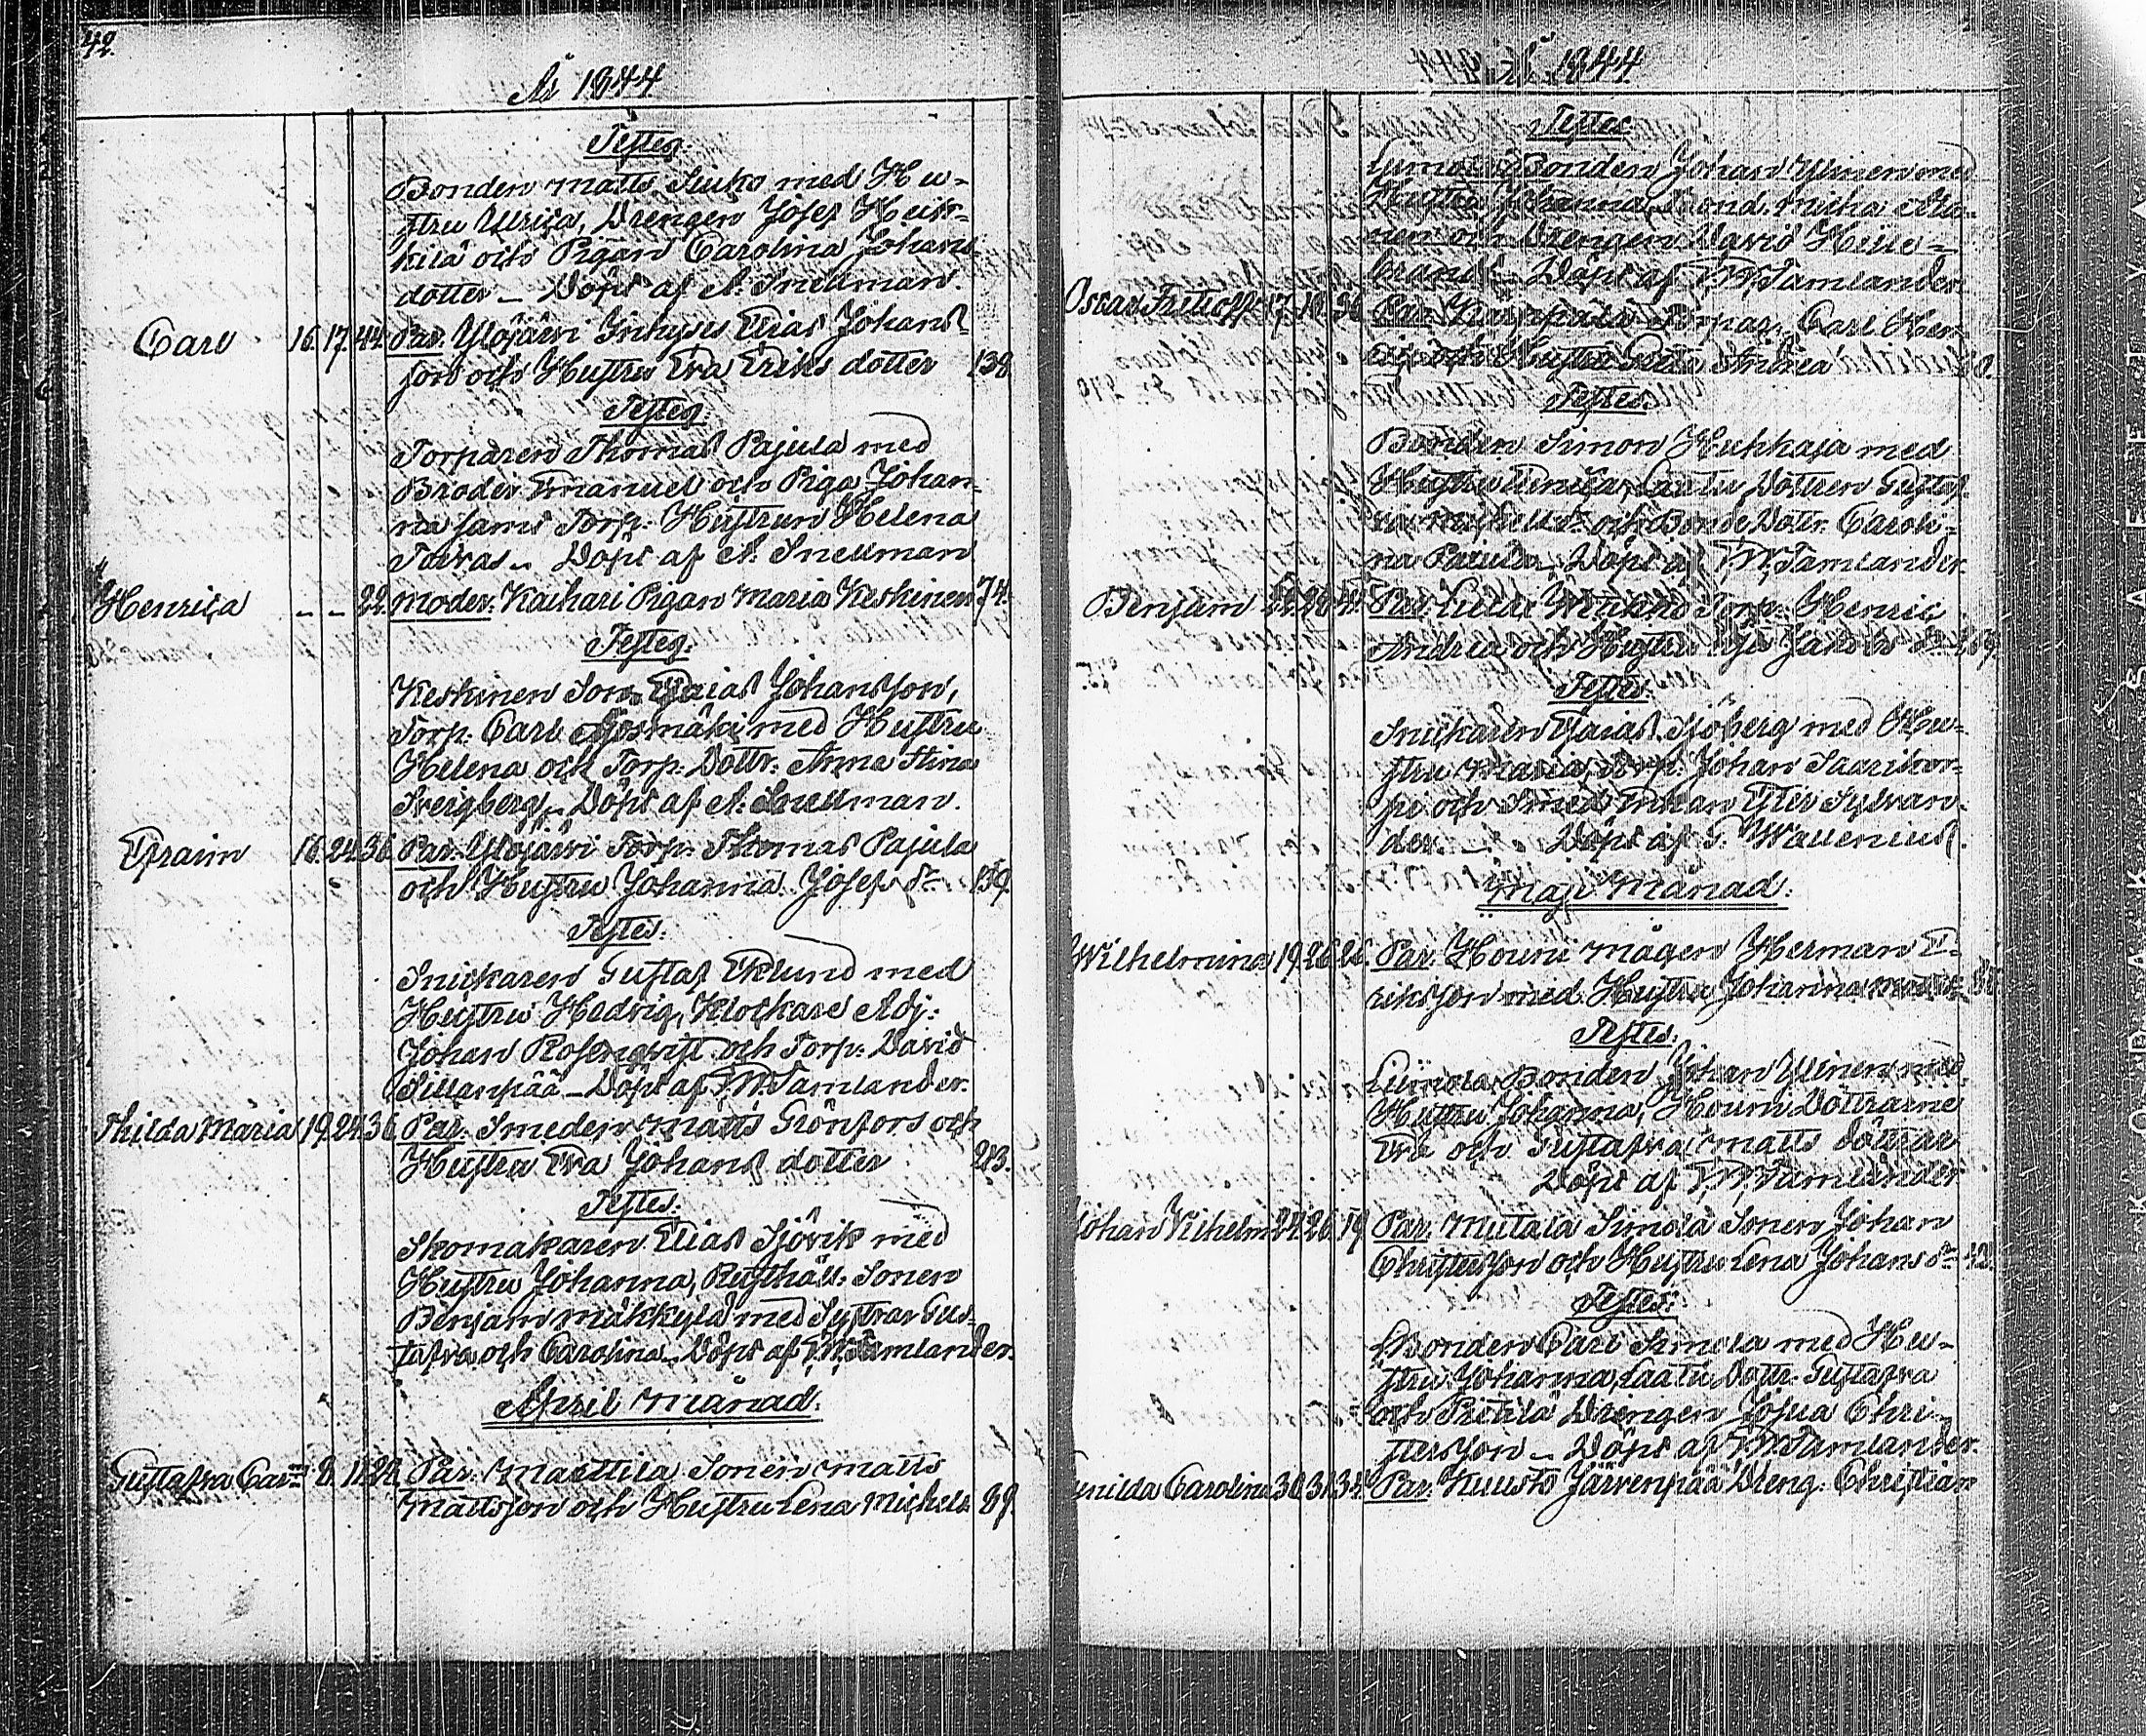 42.
År 1844
Testes:
Bonden Matts Siuko med Hu-
stru Ulrica, Drengen Josef Heik-
kilä och Pigan Carolina Johans
dotter — Döpt af A. Snellman.
Carl 16. 17. 44. Par. Ylöjärvi Inhyses Elias Johans-
son och Hustru Eva Eriks dotter 138
Testes.
Torparen Thomas Pajula med
Broder Emanuel och Piga Johan-
na samt Torp: Hustrun Helena
Döpt af A. Snellman
Henrica - - 22. Moder: Kaihari Pigan Maria Keskinen 74.
Testes:
Keskinen Son Esaias Johansson,
Torp. Carl med Hustru
Helena och Torp: Dottr: Anna Stina
Döpt af A. Snellman.
Efraim 16. 24. 36. Par. Ylöjärvi Torp. Thomas Pajula
och Hustru Johanna Josefs dr 139.
Testes:
Snickaren Gustaf Eklund med
Hustru Hedvig, Klockare Adj:
Johan Rosenqvist och Torp: David
Sillanpää — Döpt af F.W. Tamlander.
Thilda Maria 19. 24. 36. Par. Smeden Matts Grönfors och
Hustru Eva Johans dotter 213.
Testes:
Skomakaren Elias Sjövik med
Hustru Johanna, Rusthåll: Sonen
Benjam Mäkkylä med Systrar Gus-
tafva och Carolina — Döpt af F.W. Tamlander.
April Månad.
Gustafva Carna 8. 11. 28. Par. Marttila Sonen Matts
Mattsson och Hustru Lena Michels 89.
År 1844
Testes
Limola Bonden Johan Ylinen med
Hustru Johanna, Bond. Micha
och Drengen David Hille-
brandt — Döpt af F.W. Tamlander
Oscar Frithioff 17. 19. 36 Par. Torpar. Carl Hen-
och Hustru Greta Andrea
Testes:
Bonden Simon Huhkaja med
Hustru Laalu Dottren Gustaf-
va Michels dr och Bonde Dottr. Caroli-
na Döpt af F.W. Tamlander.
Benjam 22. 26. Par. Torp: Henric
Andrea och Hustru Jakobs dr
Testes:
Snickaren Esaias Sjöberg med Hu-
stru Maria, Torp. Johan Saarikor-
pi och Smed Enkan Sylvan-
der. — Döpt af G. Wallenius.
Maji Månad:
Wilhelmina 19. 26. 26. Par. Houni Mågen Herman E-
riksson med Hustru Johanna Matts
Testes:
Limola Bonden Johan Ylinen med
Hustru Johanna, Houni Döttrarne
Eva och Gustafva Matts döttrar
Döpt af F.W. Tamlander
Johan Vilhelm 24. 26. 19. Par. Mutala Simola Sonen Johan
Christersson och Hustru Lena Johans dr 42.
Testes:
Bonden Carl Simola med Hu-
stru Johanna, Laalu Dottr. Gustafva
och Pritilä Drengen Josua Chri-
stersson — Döpt af F.W. Tamlander.
Carolina 30. 31. 34. Par. Kuusto Järvenpää Dreng. Christian